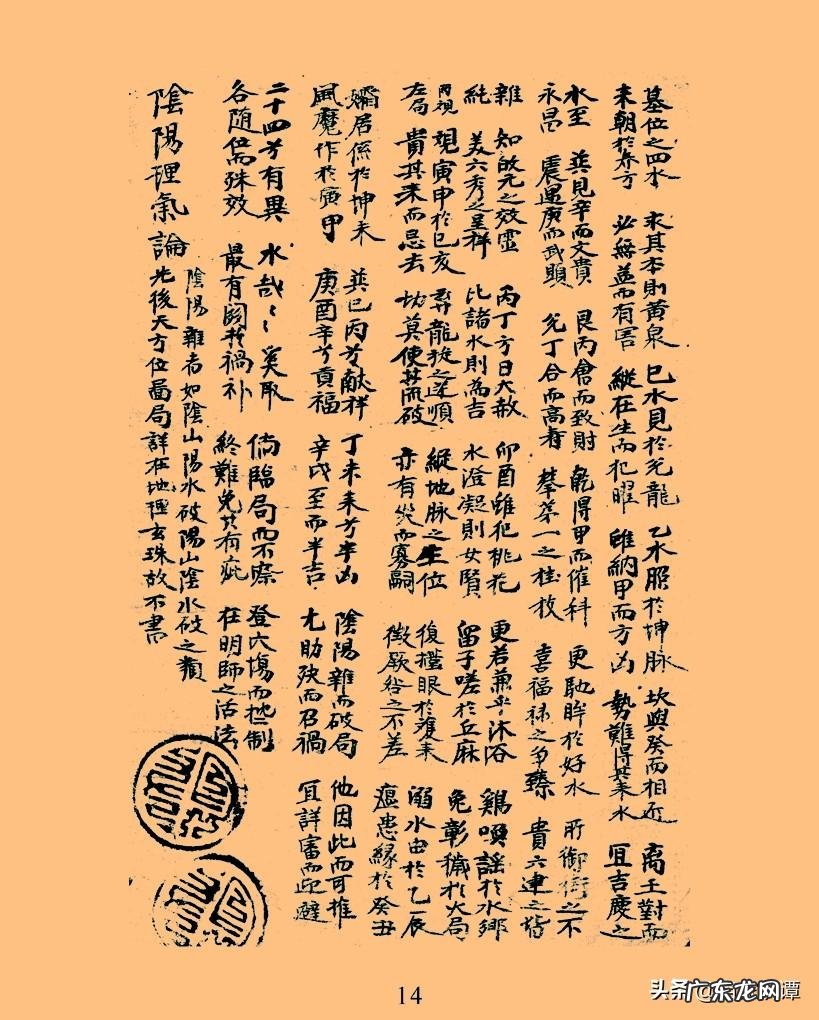 墓位之四水 求其本則黄泉 巳水見於艮龍 乙水照於坤脉 坎與癸而相近 离壬對而
来朝於本方 必無益而有害 縱在生而犯曜 雖納甲而方凶 勢難得其来水 宜吉慶之
水至 巽見辛而文貴 艮丙會而致財 乾得甲而催科 更馳眸於好水 所御街之不
永昌 震遇庚而武顯 兊丁合而高寿 攀第一之桂枝 喜福禄之争臻 貴六建之皆
雜 知啟元之效靈 丙丁方曰大赦 卯酉雖犯桃花 更若兼乎沐浴 鷄唤謡於水鄉
純 美六秀之呈祥 比諸水則為吉 水澄凝則女賢 留子嗟於丘麻 兔彰穢於火局
再視 覌寅甲於巳亥 龍旋之逆順 縱地脉之生位 復擡眼於来 溺水由於乙辰
左局 貴其来而忌去 切莫使其而破 亦有災而寡嗣 徵厥咎之不差 瘟患緣於癸丑
孀居係於坤未 巽巳丙兮献祥 丁未来兮半凶 陰陽雜而破局 他因此而可推
風魔作於寅甲 庚酉辛兮賁福 辛戌至而半吉 尤助殃而召禍 宜詳審而迎避
二十四兮有異 水哉々奚取 倘臨局而不察 登穴塲而枕制
各随位而殊效 最有関於禍补 終難免其有疵 在明師之活法
陰陽理氣論
陰陽雜者如陰山陽水破陽山陰水破之類
先後天方位畵局詳在地理玄珠故不書
14
头条 广东龙网 谭